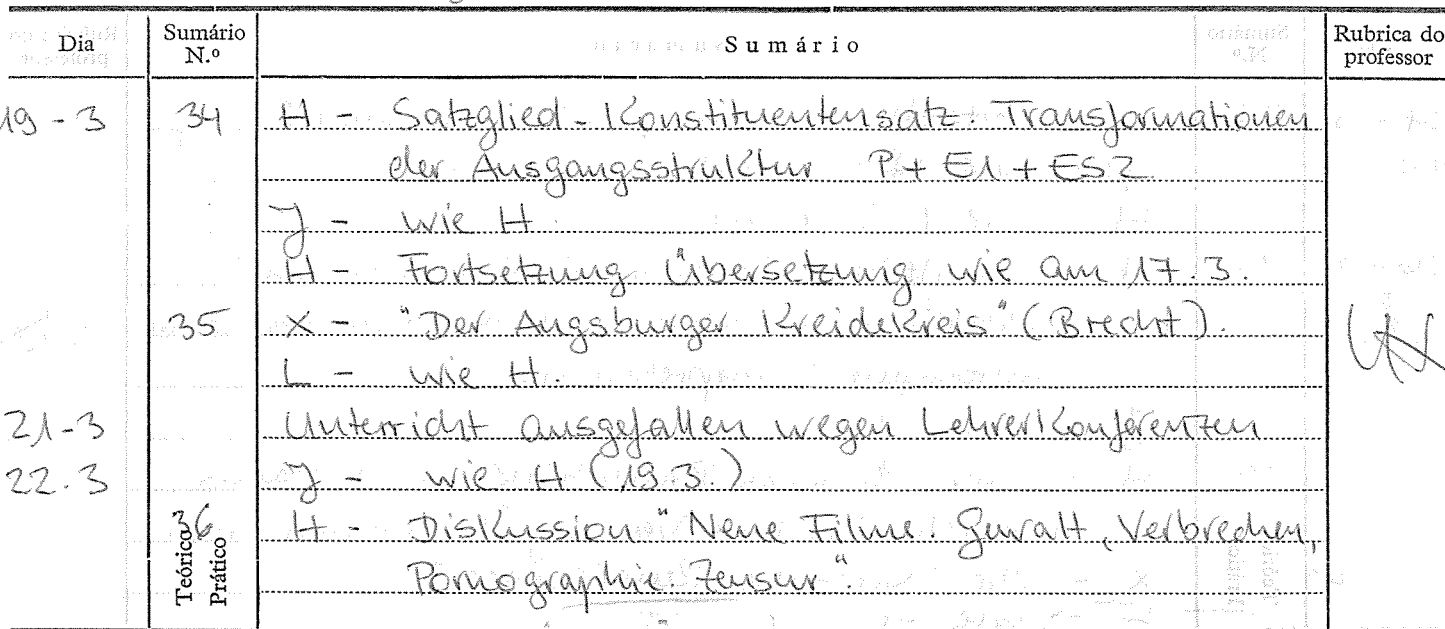 Dia Sumário N.º Sumário Rubrica do professor
19-3 34 H - Satzglied - Konstituentensatz. Transformationen
der Ausgangsstruktur P + E1 + ES2
J - wie H.
H - Fortsetzung Übersetzung wie am 17.3.
35 X - "Der Augsburger Kreidekreis" (Brecht).
L - wie H.
21-3 Unterricht ausgefallen wegen Lehrerkonferenzen
22.3 J - wie H (19.3)
36 H - Diskussion "Neue Filme. Gewalt, Verbrechen,
Teórico Prático Pornographie. Zensur".